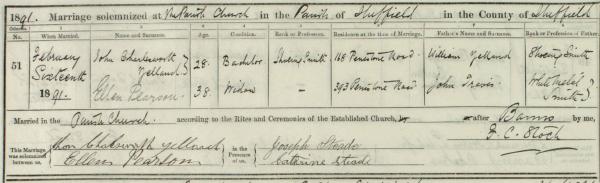 1891. Marriage solemnized at the Parish Church in the Parish of Sheffield in the County of Sheffield
Columns:— 1 2 3 4 5 6 7 8
When Married. Name and Surname. Age. Condition. Rank or Profession. Residence at the time of Marriage. Father's Name and Surname. Rank or Profession of Father.
51 February John Charlesworth 28. Bachelor Shoeing Smith 168 Penistone Road William Yelland Shoeing Smith
Sixteenth Yelland
1891. Ellen Pearson 38. Widow — 393 Penistone Road John Travis White Metal Smith
Married in the Parish Church according to the Rites and Ceremonies of the Established Church, by after Banns by me,
This Marriage was solemnized between us, John Chalsworth Yelland in the Presence of us, Joseph Steade
Ellen Pearson Catherine Steade